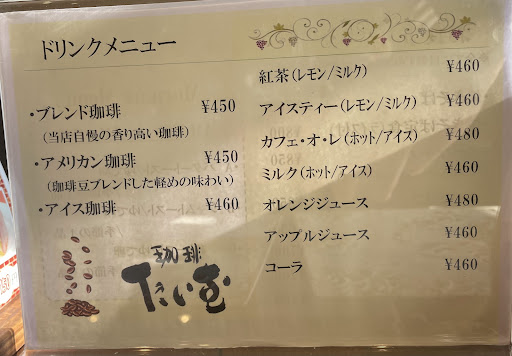 ドリンクメニュー
・ブレンド珈琲 ¥450
(当店自慢の香り高い珈琲)
・アメリカン珈琲 ¥450
(珈琲豆ブレンドした軽めの味わい)
・アイス珈琲 ¥460
紅茶(レモン/ミルク) ¥460
アイスティー(レモン/ミルク) ¥460
カフェ・オ・レ(ホット/アイス) ¥480
ミルク(ホット/アイス) ¥460
オレンジジュース ¥480
アップルジュース ¥460
コーラ ¥460
珈琲